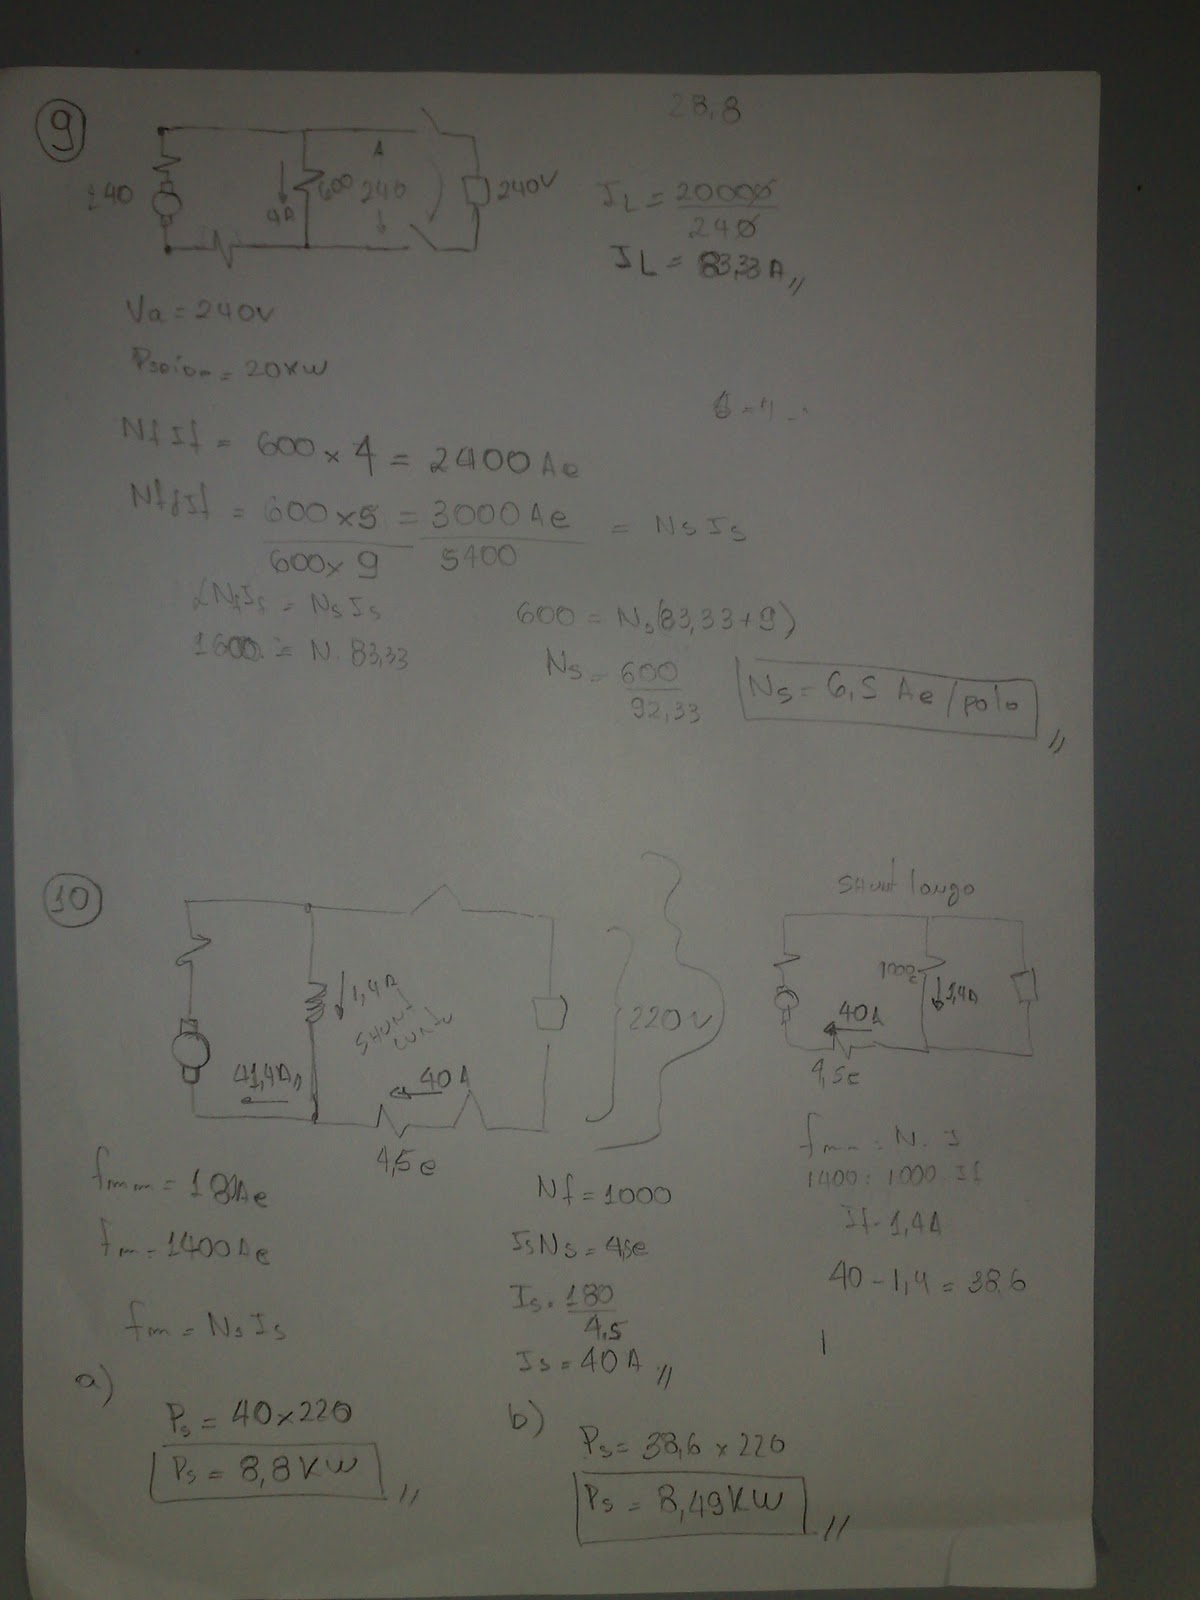 9
28,8
±40
4A
600
240
240V
IL = 20000/240
IL = 83,33 A
Va = 240V
= 20KW
Nf If = 600 x 4 = 2400 Ae
= 600 x 5 = 3000 Ae = Ns Is
600 x 9 5400
= Ns Is
= N. 83,33
600 = Ns(83,33+9)
Ns = 600/92,33
Ns = 6,5 Ae/polo
10
1,4A
SHUNT CURTO
41,4A
40A
4,5e
220V
SHUNT longo
1000
1,4A
40A
4,5e
fmm = 180Ae
fm = 1400Ae
fm = Ns Is
Nf = 1000
Is Ns = 4,5e
Is = 180/4,5
Is = 40 A
fmm = N. I
1400 = 1000 If
If = 1,4A
40 - 1,4 = 38,6
a)
Ps = 40 x 220
Ps = 8,8 KW
b)
Ps = 38,6 x 220
Ps = 8,49KW